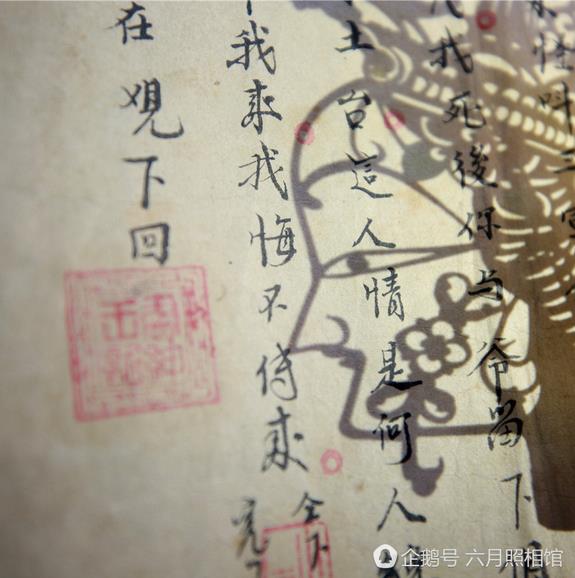 怪叫三
我死後你与爷留下
土台這人情是何人
我来我悔不侍来
全下
完
在覌下回
企鹅号 六月照相馆